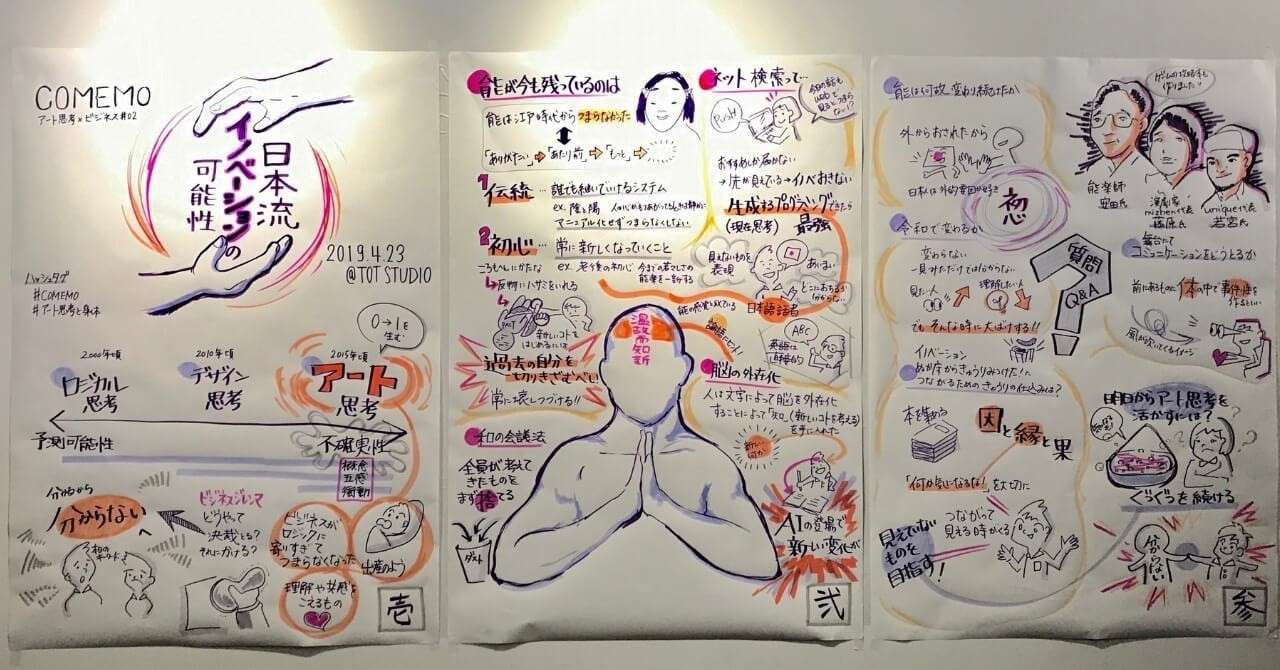 COMEMO
アート思考×ビジネス#02
日本流
イノベーションの
可能性
2019.4.23
@TOT STUDIO
ハッシュタグ
#COMEMO
#アート思考と身体
0→1を
生む
2000年頃
ロジカル
思考
2010年頃
デザイン
思考
2015年頃
アート
思考
予測可能性
不確実性
五感
衝動
分かるから
分からない
へ
ビジネスジャンで
どうやって
決裁とる?
きれにかける?
ビジネスが
ロジックに
寄りすぎて
つまらなくなった
出産のよう
理解や共感を
こえるもの
壱
能が今も残っているのは
能は江戸時代からつまらなかった
「ありがたい」→「あたり前」→「もっと」→
1 伝統…誰でも継いでいけるシステム
ex.陰と陽
マニュアル化せずつまらなくしない
2 初心…常に新しくなっていくこと
ex.老後の初心
ころもへんにかたな
→反物にハサミをいれる
新しいコトを
はじめるには
過去の自分を
切りきざむべし
常に壊しつづける!!
和の会議法
全員が考えて
きたものを
まず捨てる
ダスト
温故知新
ネット検索って…
Push
おすすめしか届かない
→先が見えている→イノベおきない
生成するプログラミングできたら
(現在思考) 最強
見えないものを
表現
あいまい
どこにあるか
分からない…
能の感覚と似ている
日本語話者
ABC
英語は
直接的
脳の外在化
人は文字によって脳を外在化
することによって「知」(新しいコトを考える)
を手に入れた
AIの登場で
新しい変化が
弐
能は何故変わり続けたか
外からおされたから
日本は外的要因が好き
初心
ゲームの攻略本も
作りました!
能楽師
安田氏
演劇家
mizhen代表
藤原氏
unique代表
若宮氏
令和で変わるか
変わらない
一見みただけでは分からない
見たい人
理解したい人
でもそんな時に大ばけする!!
質問
Q&A
舞台にて
コミュニケーションをどうとるか
前にあるものに1本の中で事件・産を
作るといい
風が吹いてくるイメージ
イノベーション
ぬか床からきゅうりみつけた!に
つながるためのきゅうりの仕込みは?
本を集める
因と縁と果
「何か気になるな!」を大切に
つながって
見える時がくる
見えていない
ものを
目指す!
明日からアート思考を
活かすには?
ぐつぐつを続ける
分からない
参